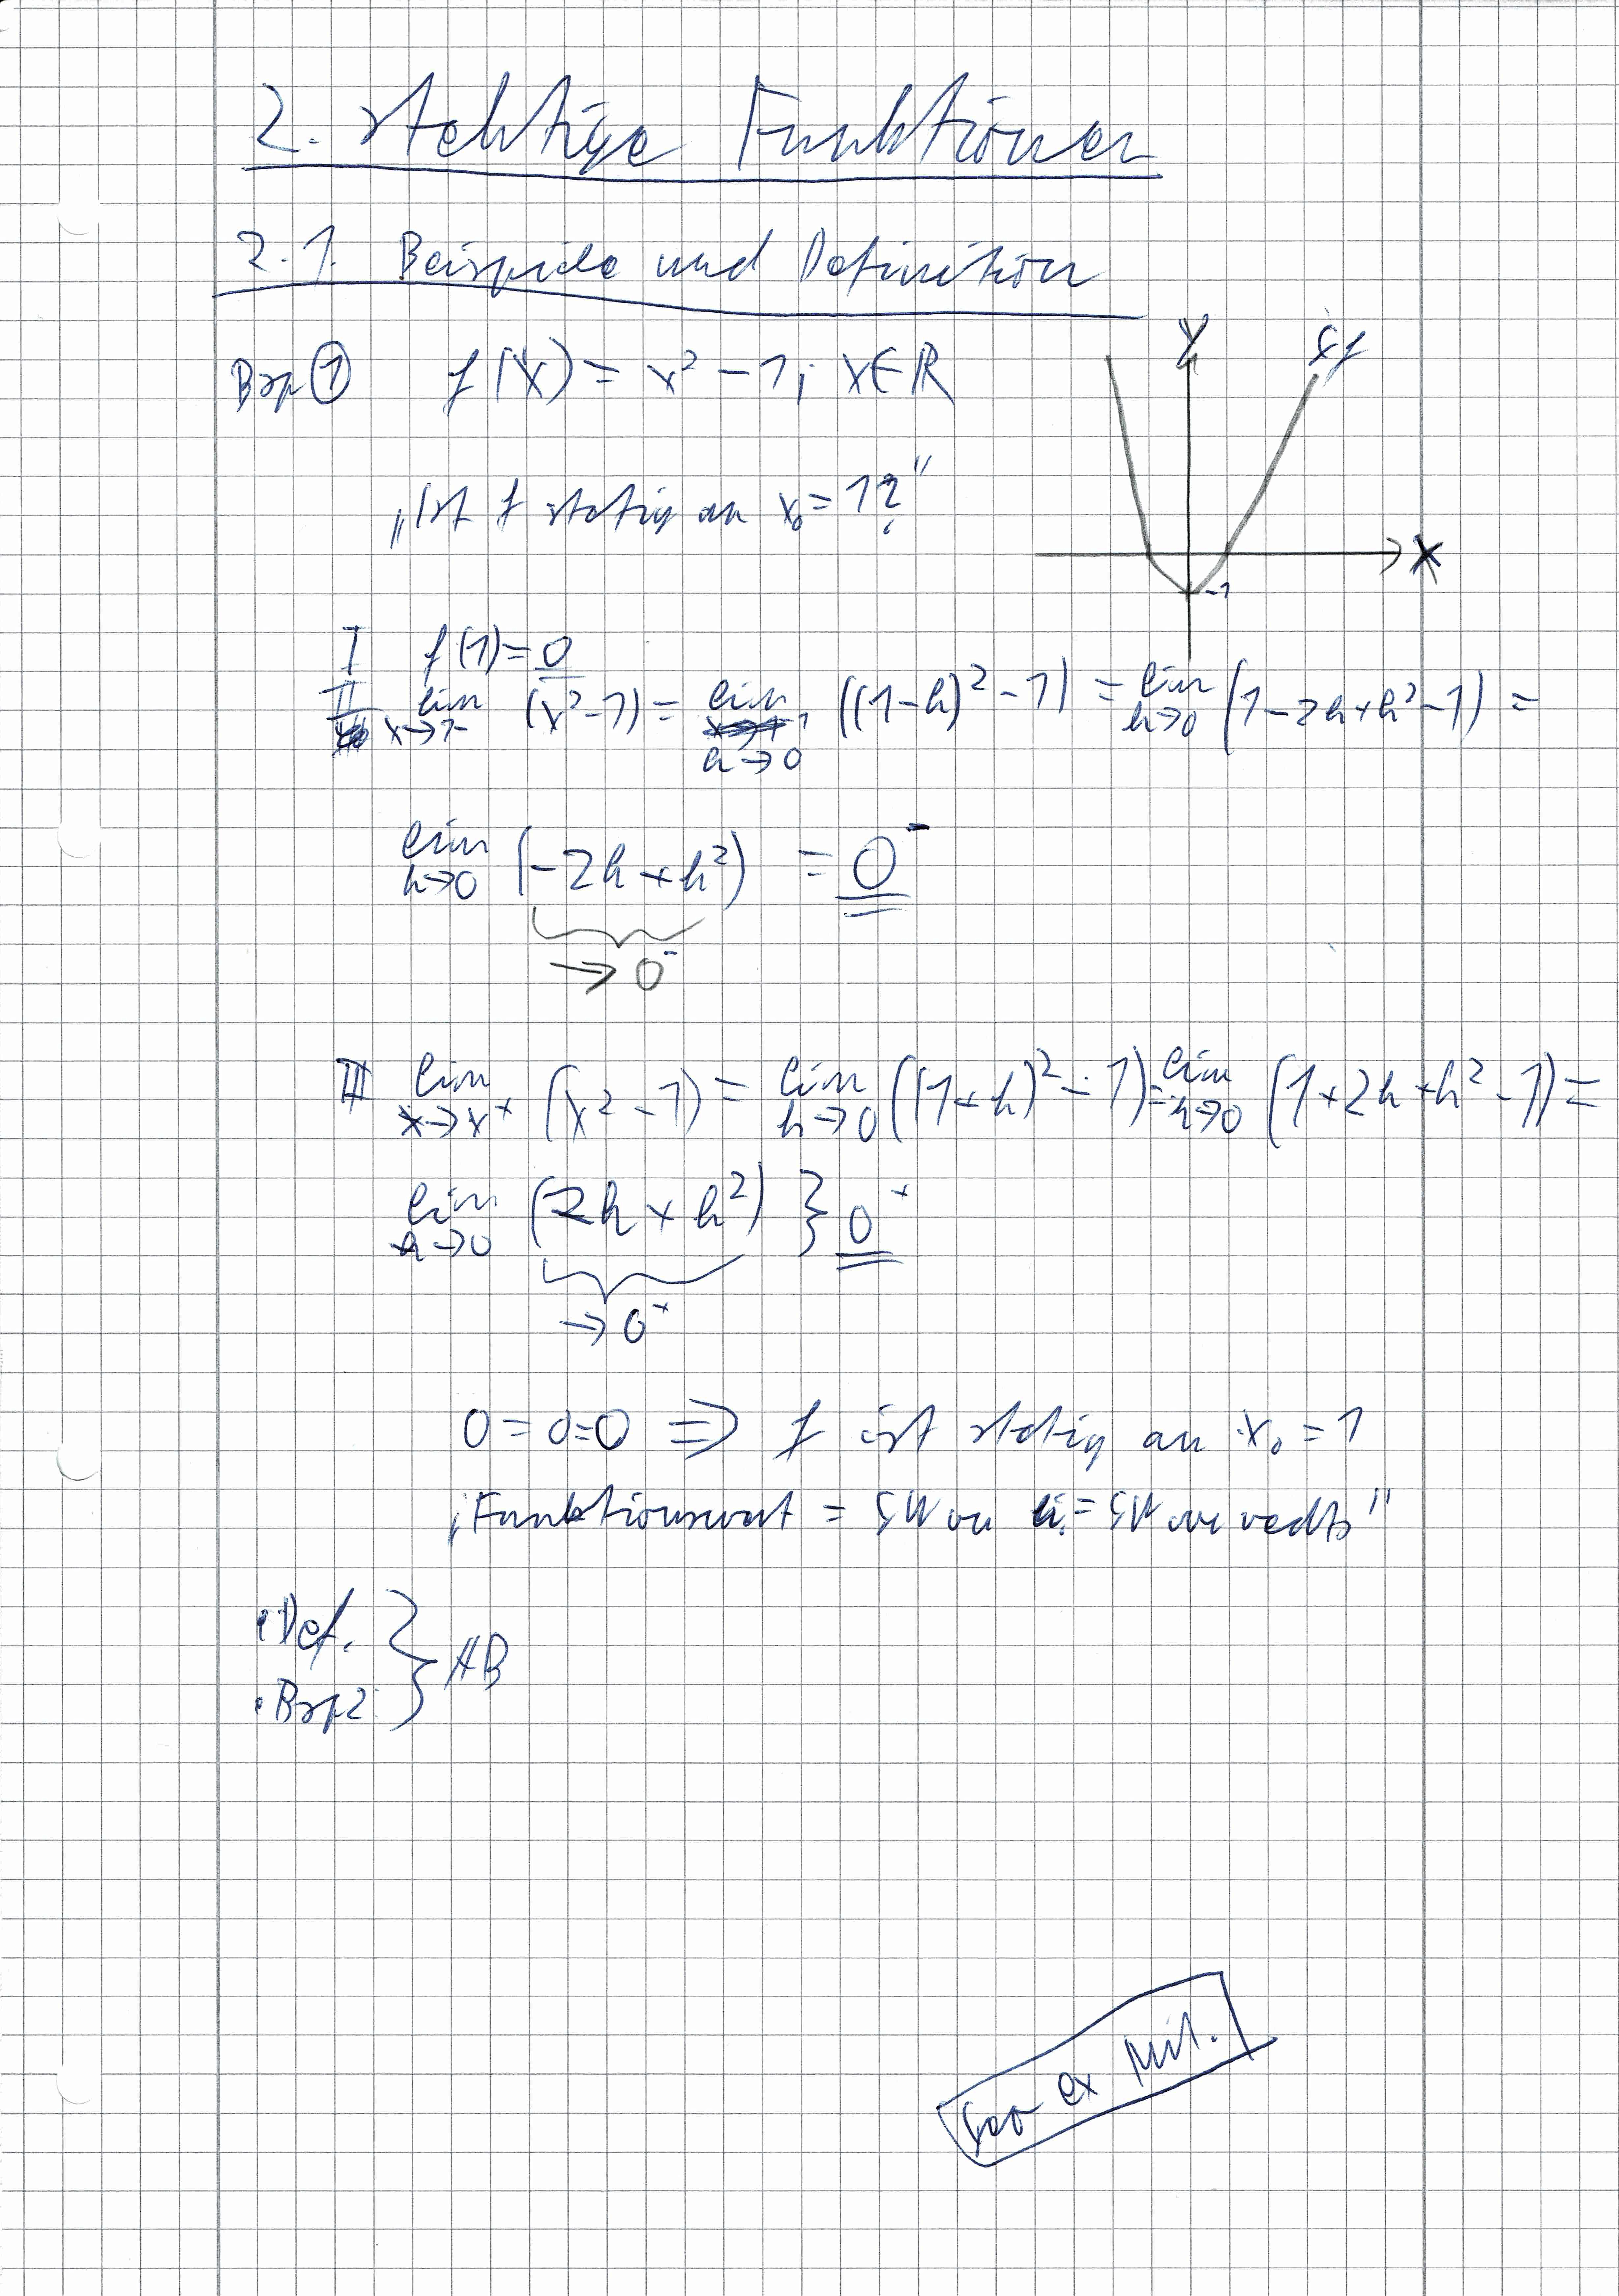 2. stehtige Funktionen
2.1. Beispiele und Definition
Bsp ① f(x) = x² - 1; x∈ℝ
y
x
-1
„Ist f stetig an x₀ = 1?"
I f(1) = 0
II lim x→1⁻ (x²-1) = lim h→0 ((1-h)²-1) = lim h→0 (1-2h+h²-1) =
lim h→0 (-2h+h²) = 0⁻
→ 0⁻
III lim x→x⁺ (x²-1) = lim h→0 ((1+h)²-1) = lim h→0 (1+2h+h²-1) =
lim h→0 (2h+h²) } 0⁺
→ 0⁺
0 = 0 = 0 ⇒ f ist stetig an x₀ = 1
„Funktionswert = GW von li. = GW von rechts"
• Def.
• Bsp2 } AB
ex